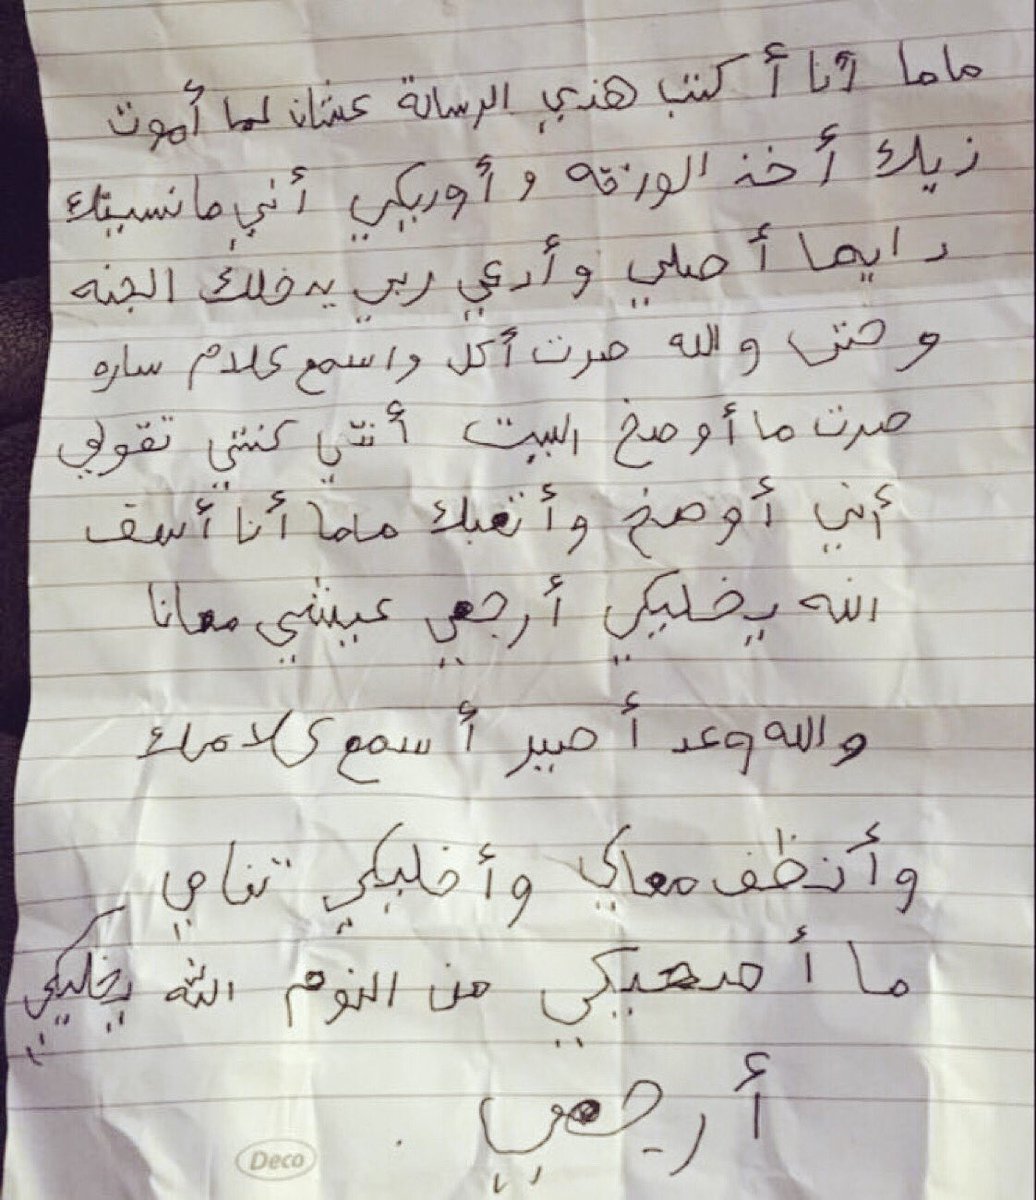 ماما أنا أكتب هذي الرسالة عشان لما أموت
زيك أخذ الورقه و أوريكي أني ما نسيتك
دايما أصلي وأدعي ربي يدخلك الجنه
وحتى والله صرت أكل واسمع كلام ساره
صرت ما أوصخ البيت أنتي كنتي تقولي
أني أوصخ وأتعبك ماما أنا أسف
الله يخليكي أرجعي عيشي معانا
والله وعد أصير أسمع كلامك
وأنظف معاكي وأخليكي تنامي
ما أصحيكي من النوم الله يخليكي
أرجعي
Deco